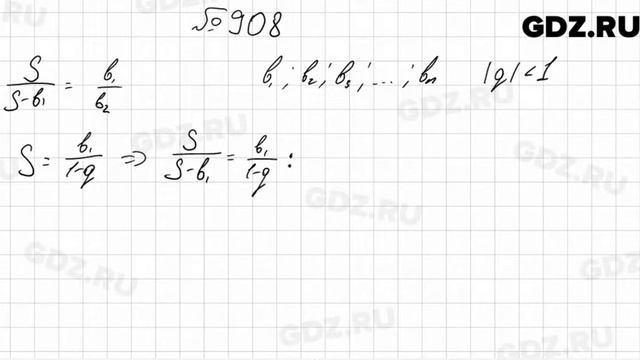 №908
GDZ.RU
S/(S-b₁) = b₁/b₂
b₁; b₂; b₃; ...; bₙ |q|<1
S = b₁/(1-q) => S/(S-b₁) = b₁/(1-q) :
GDZ.RU
GDZ.RU
GDZ.RU
GDZ.RU
GDZ.RU
GDZ.RU
GDZ.RU
GDZ.RU